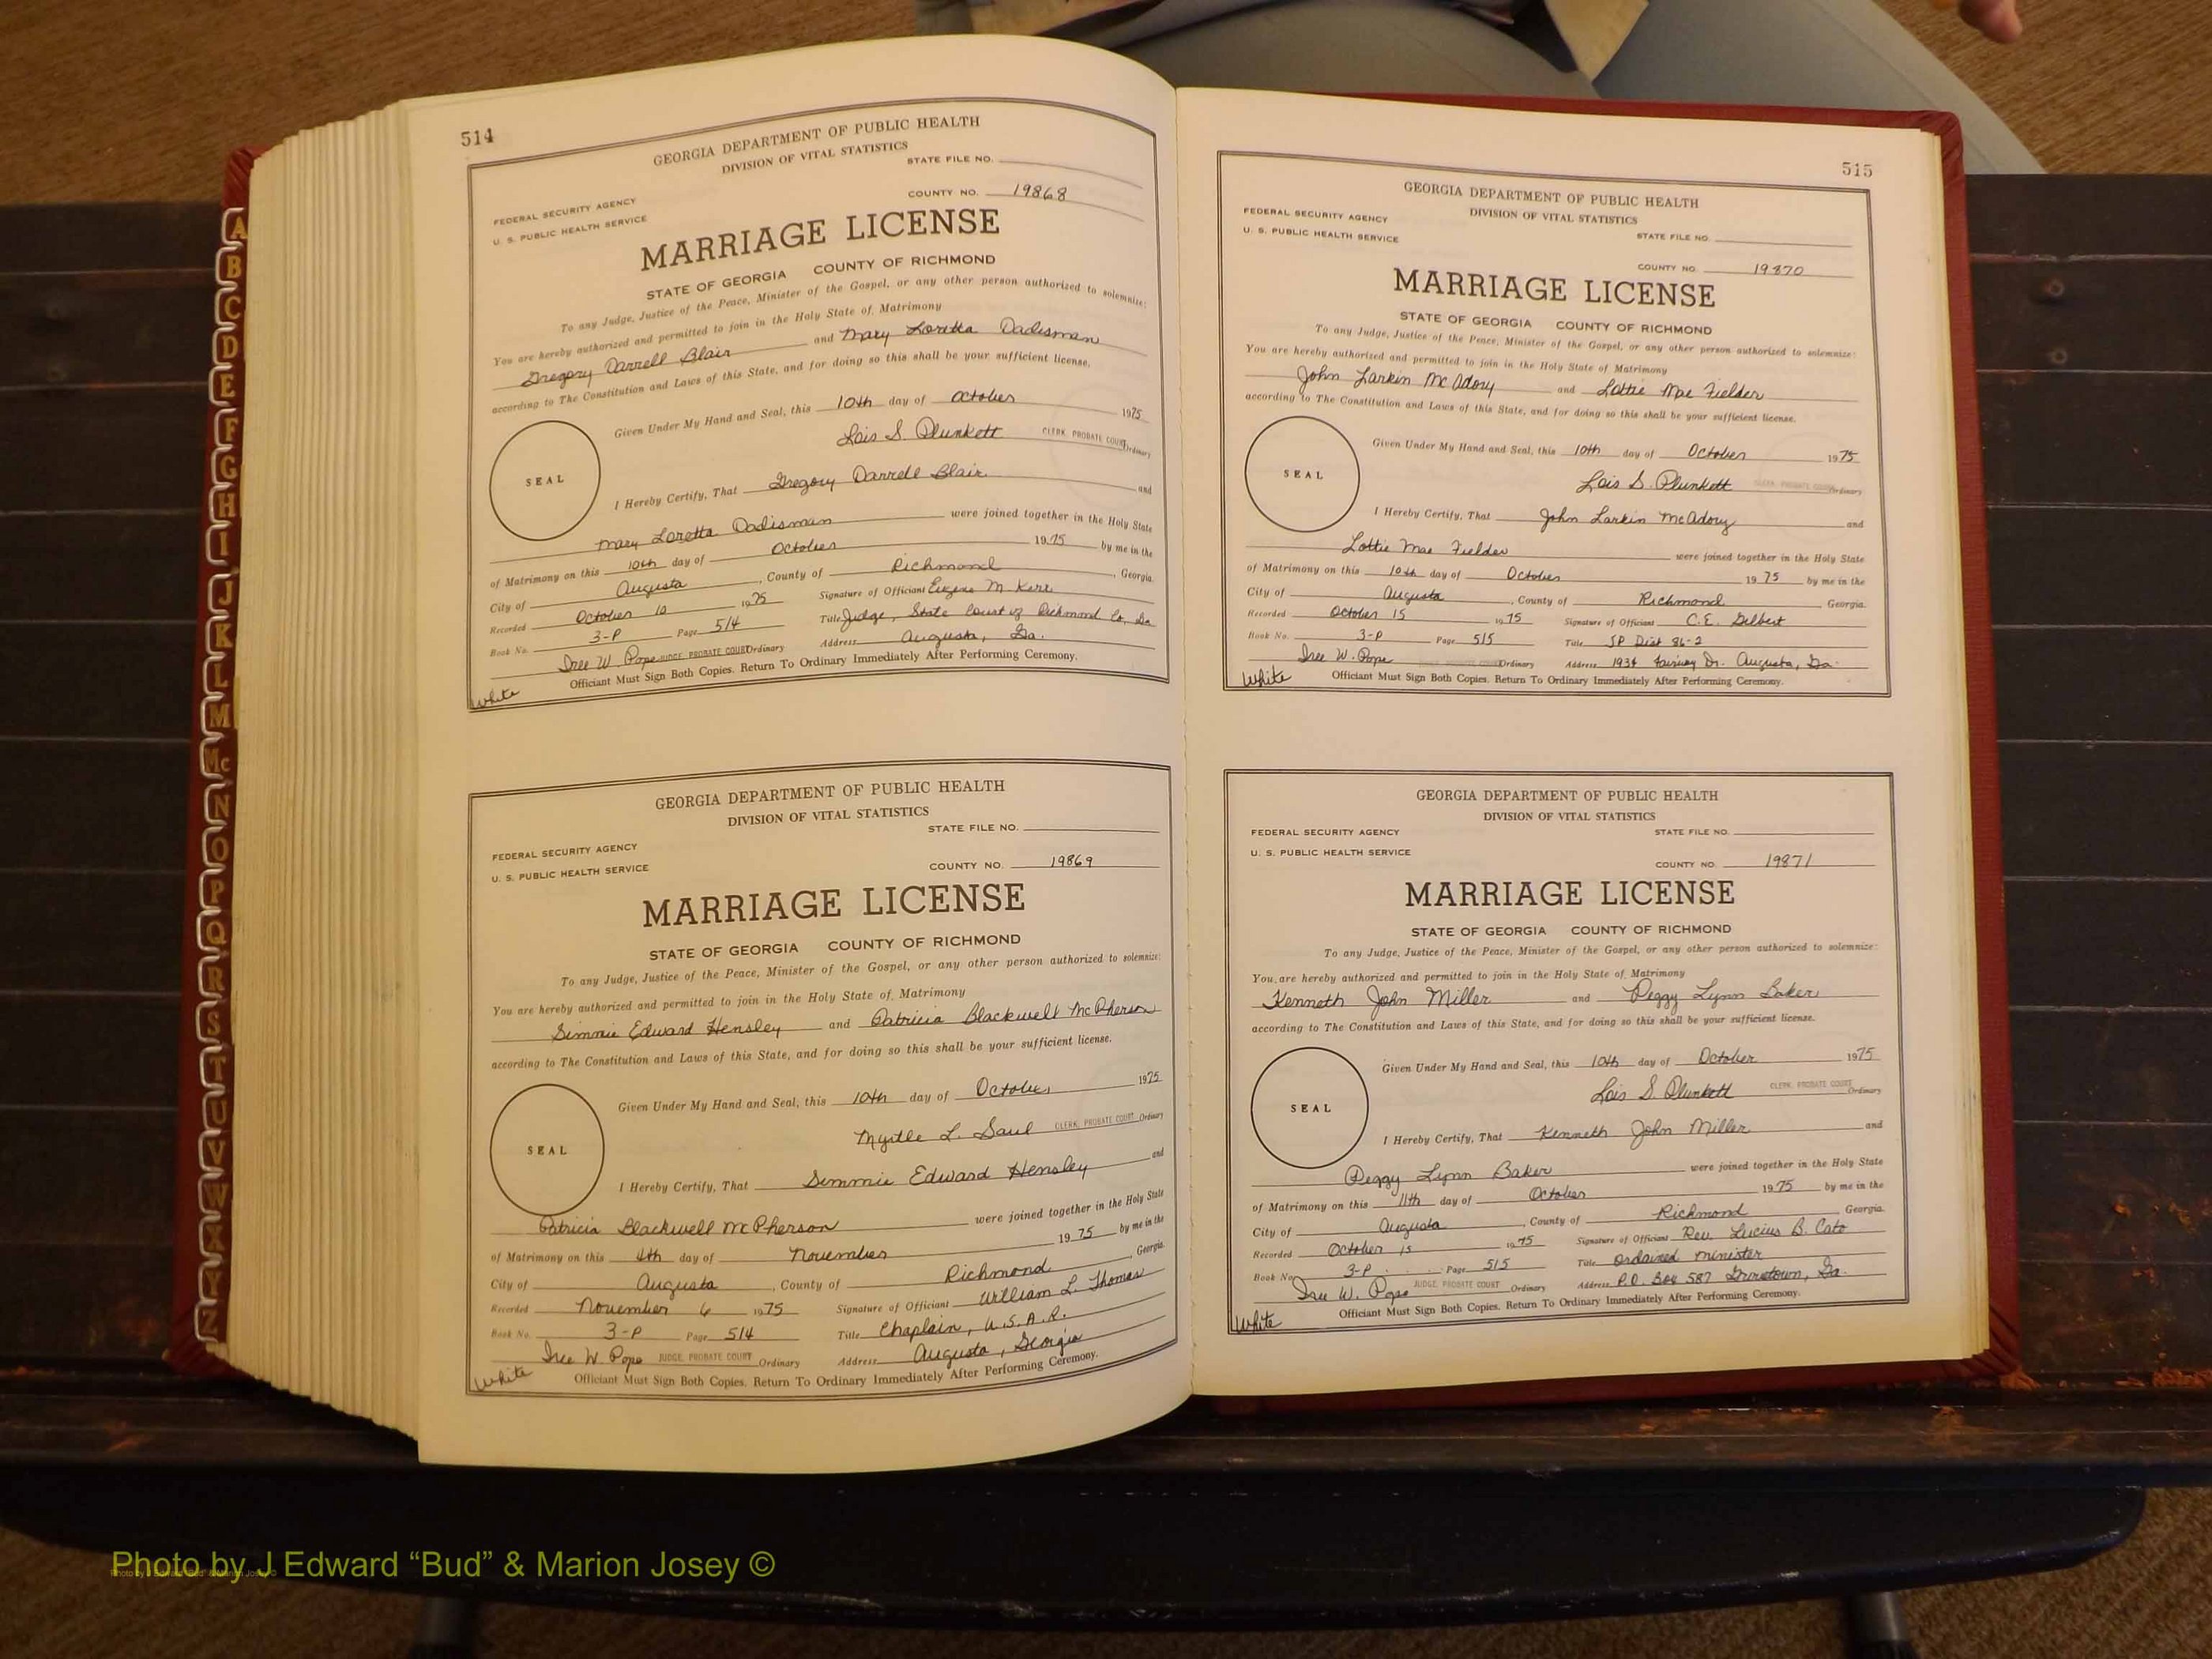 514
GEORGIA DEPARTMENT OF PUBLIC HEALTH
DIVISION OF VITAL STATISTICS
STATE FILE NO.
COUNTY NO. 19868
FEDERAL SECURITY AGENCY
U. S. PUBLIC HEALTH SERVICE
MARRIAGE LICENSE
STATE OF GEORGIA COUNTY OF RICHMOND
To any Judge, Justice of the Peace, Minister of the Gospel, or any other person authorized to solemnize:
You are hereby authorized and permitted to join in the Holy State of Matrimony
Gregory Darrell Blair and Mary Loretta Dadisman
according to The Constitution and Laws of this State, and for doing so this shall be your sufficient license.
Given Under My Hand and Seal, this 10th day of October 1975
Lois S. Plunkett CLERK, PROBATE COURT Ordinary
SEAL
I Hereby Certify, That Gregory Darrell Blair and
Mary Loretta Dadisman were joined together in the Holy State
of Matrimony on this 10th day of October 1975 by me in the
City of Augusta, County of Richmond, Georgia.
Recorded October 10 1975 Signature of Officiant Eugene M. Kerr
Book No. 3-P Page 514 Title Judge, State Court of Richmond Co, Ga
Iree W. Pope JUDGE, PROBATE COURT Ordinary Address Augusta, Ga.
Officiant Must Sign Both Copies. Return To Ordinary Immediately After Performing Ceremony.
White
GEORGIA DEPARTMENT OF PUBLIC HEALTH
DIVISION OF VITAL STATISTICS
STATE FILE NO.
FEDERAL SECURITY AGENCY
U. S. PUBLIC HEALTH SERVICE
COUNTY NO. 19869
MARRIAGE LICENSE
STATE OF GEORGIA COUNTY OF RICHMOND
To any Judge, Justice of the Peace, Minister of the Gospel, or any other person authorized to solemnize:
You are hereby authorized and permitted to join in the Holy State of Matrimony
Simmie Edward Hensley and Patricia Blackwell McPherson
according to The Constitution and Laws of this State, and for doing so this shall be your sufficient license.
Given Under My Hand and Seal, this 10th day of October 1975
Myrtle L. Saul CLERK, PROBATE COURT Ordinary
SEAL
I Hereby Certify, That Simmie Edward Hensley and
Patricia Blackwell McPherson were joined together in the Holy State
of Matrimony on this 4th day of November 1975 by me in the
City of Augusta, County of Richmond, Georgia.
Recorded November 6 1975 Signature of Officiant William L. Thomas
Book No. 3-P Page 514 Title Chaplain, U.S.A.R.
Iree W. Pope JUDGE, PROBATE COURT Ordinary Address Augusta, Georgia
Officiant Must Sign Both Copies. Return To Ordinary Immediately After Performing Ceremony.
White
515
GEORGIA DEPARTMENT OF PUBLIC HEALTH
DIVISION OF VITAL STATISTICS
FEDERAL SECURITY AGENCY
U. S. PUBLIC HEALTH SERVICE
STATE FILE NO.
COUNTY NO. 19870
MARRIAGE LICENSE
STATE OF GEORGIA COUNTY OF RICHMOND
To any Judge, Justice of the Peace, Minister of the Gospel, or any other person authorized to solemnize:
You are hereby authorized and permitted to join in the Holy State of Matrimony
John Larkin McAdory and Lottie Mae Fielder
according to The Constitution and Laws of this State, and for doing so this shall be your sufficient license.
Given Under My Hand and Seal, this 10th day of October 1975
Lois S. Plunkett CLERK, PROBATE COURT Ordinary
SEAL
I Hereby Certify, That John Larkin McAdory and
Lottie Mae Fielder were joined together in the Holy State
of Matrimony on this 10th day of October 1975 by me in the
City of Augusta, County of Richmond, Georgia.
Recorded October 15 1975 Signature of Officiant C.E. Gilbert
Book No. 3-P Page 515 Title JP Dist 86-2
Iree W. Pope Ordinary Address 1934 Fairway Dr. Augusta, Ga.
Officiant Must Sign Both Copies. Return To Ordinary Immediately After Performing Ceremony.
White
GEORGIA DEPARTMENT OF PUBLIC HEALTH
DIVISION OF VITAL STATISTICS
FEDERAL SECURITY AGENCY STATE FILE NO.
U. S. PUBLIC HEALTH SERVICE
COUNTY NO. 19871
MARRIAGE LICENSE
STATE OF GEORGIA COUNTY OF RICHMOND
To any Judge, Justice of the Peace, Minister of the Gospel, or any other person authorized to solemnize:
You are hereby authorized and permitted to join in the Holy State of Matrimony
Kenneth John Miller and Peggy Lynn Baker
according to The Constitution and Laws of this State, and for doing so this shall be your sufficient license.
Given Under My Hand and Seal, this 10th day of October 1975
Lois S. Plunkett CLERK, PROBATE COURT Ordinary
SEAL
I Hereby Certify, That Kenneth John Miller and
Peggy Lynn Baker were joined together in the Holy State
of Matrimony on this 11th day of October 1975 by me in the
City of Augusta, County of Richmond, Georgia.
Recorded October 15 1975 Signature of Officiant Rev. Lucius B. Cato
Book No. 3-P Page 515 Title Ordained Minister
Iree W. Pope JUDGE, PROBATE COURT Ordinary Address P.O. Box 587 Grovetown, Ga.
Officiant Must Sign Both Copies. Return To Ordinary Immediately After Performing Ceremony.
White
A
B
C
D
E
F
G
H
I
J
K
L
M
Mc
N
O
P
Q
R
S
T
U
V
W
X
Y
Z
Photo by J Edward "Bud" & Marion Josey ©
Photo by J Edward "Bud" & Marion Josey ©